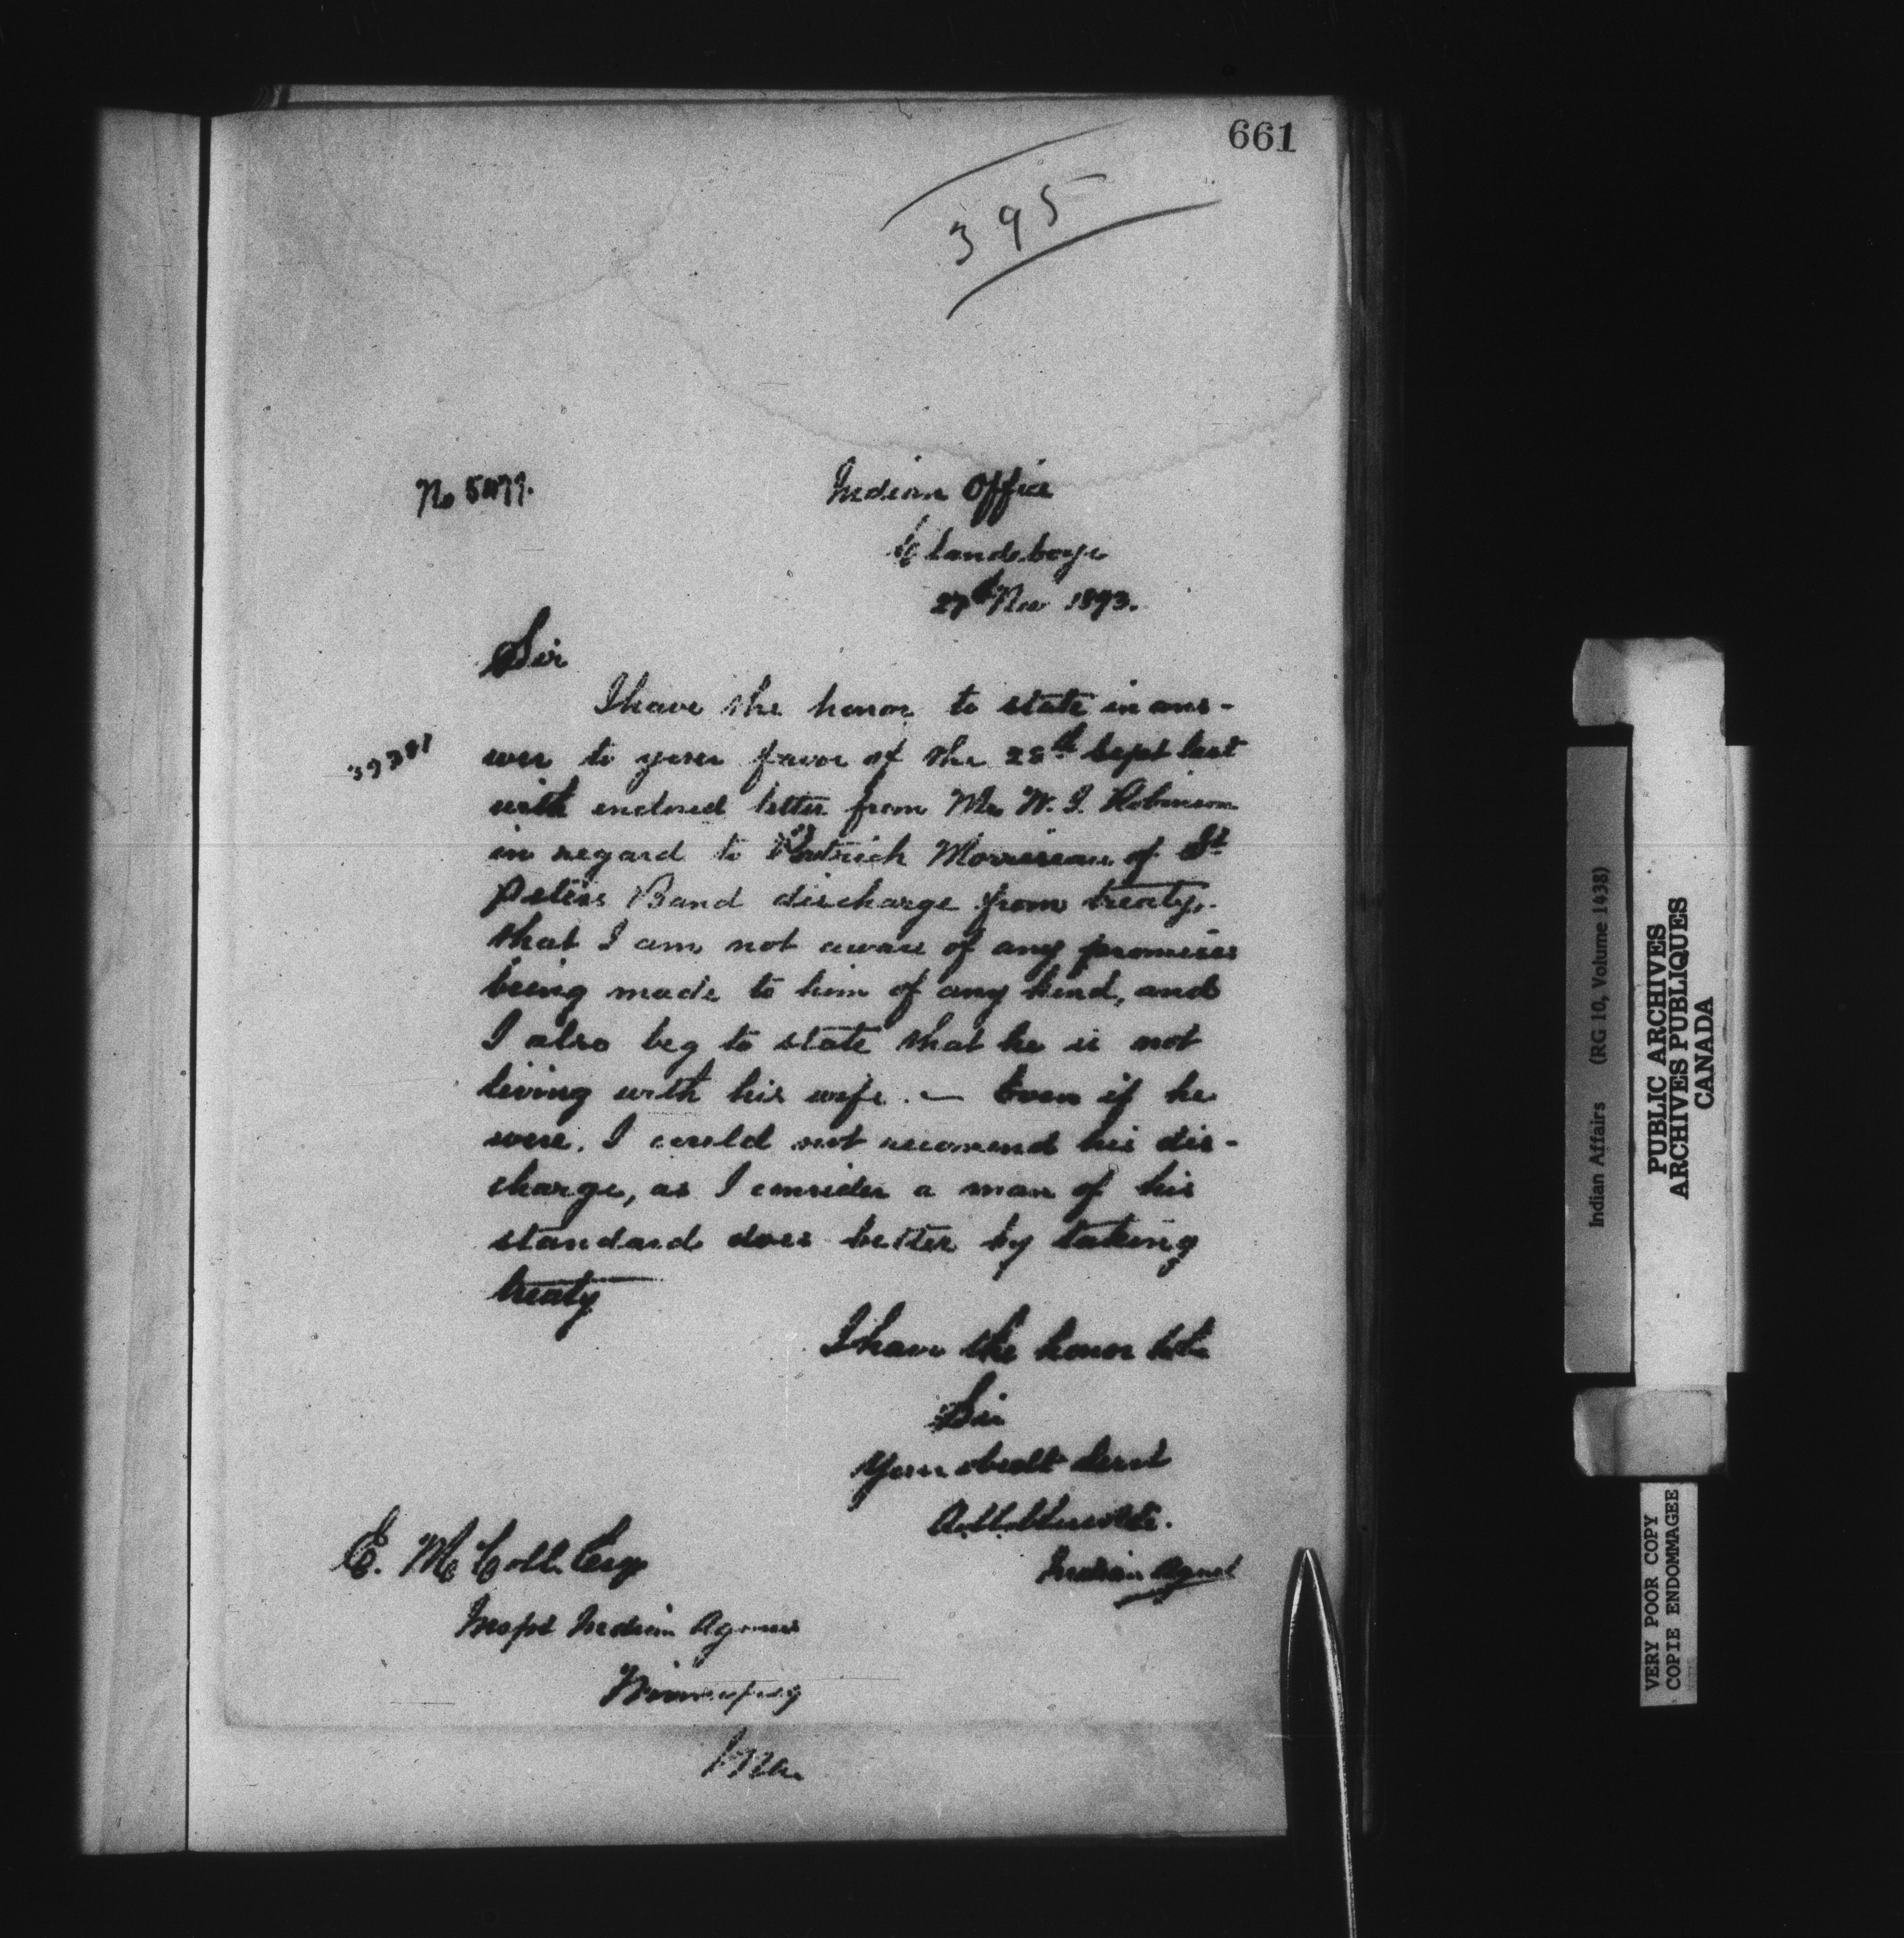 661
395
No 5077.
Indian Office
Clandeboye
27th Nov 1893.
Sir
I have the honor to state in ans-
wer to your favor of the 28th Sept last
39381
with enclosed letter from Mr W. J. Robinson
in regard to Patrick Morriseau of St
Peters Band discharge from treaty,
that I am not aware of any promises
being made to him of any kind, and
I also beg to state that he is not
living with his wife. — Even if he
were, I could not recomend his dis-
charge, as I consider a man of his
standard does better by taking
treaty
I have the honor to be
Sir
Your obedt Servt
Indian Agent
E. McColl Esq
Inspt Indian Agencies
Winnipeg
Man
Indian Affairs (RG 10, Volume 1438)
PUBLIC ARCHIVES
ARCHIVES PUBLIQUES
CANADA
VERY POOR COPY
COPIE ENDOMMAGEE